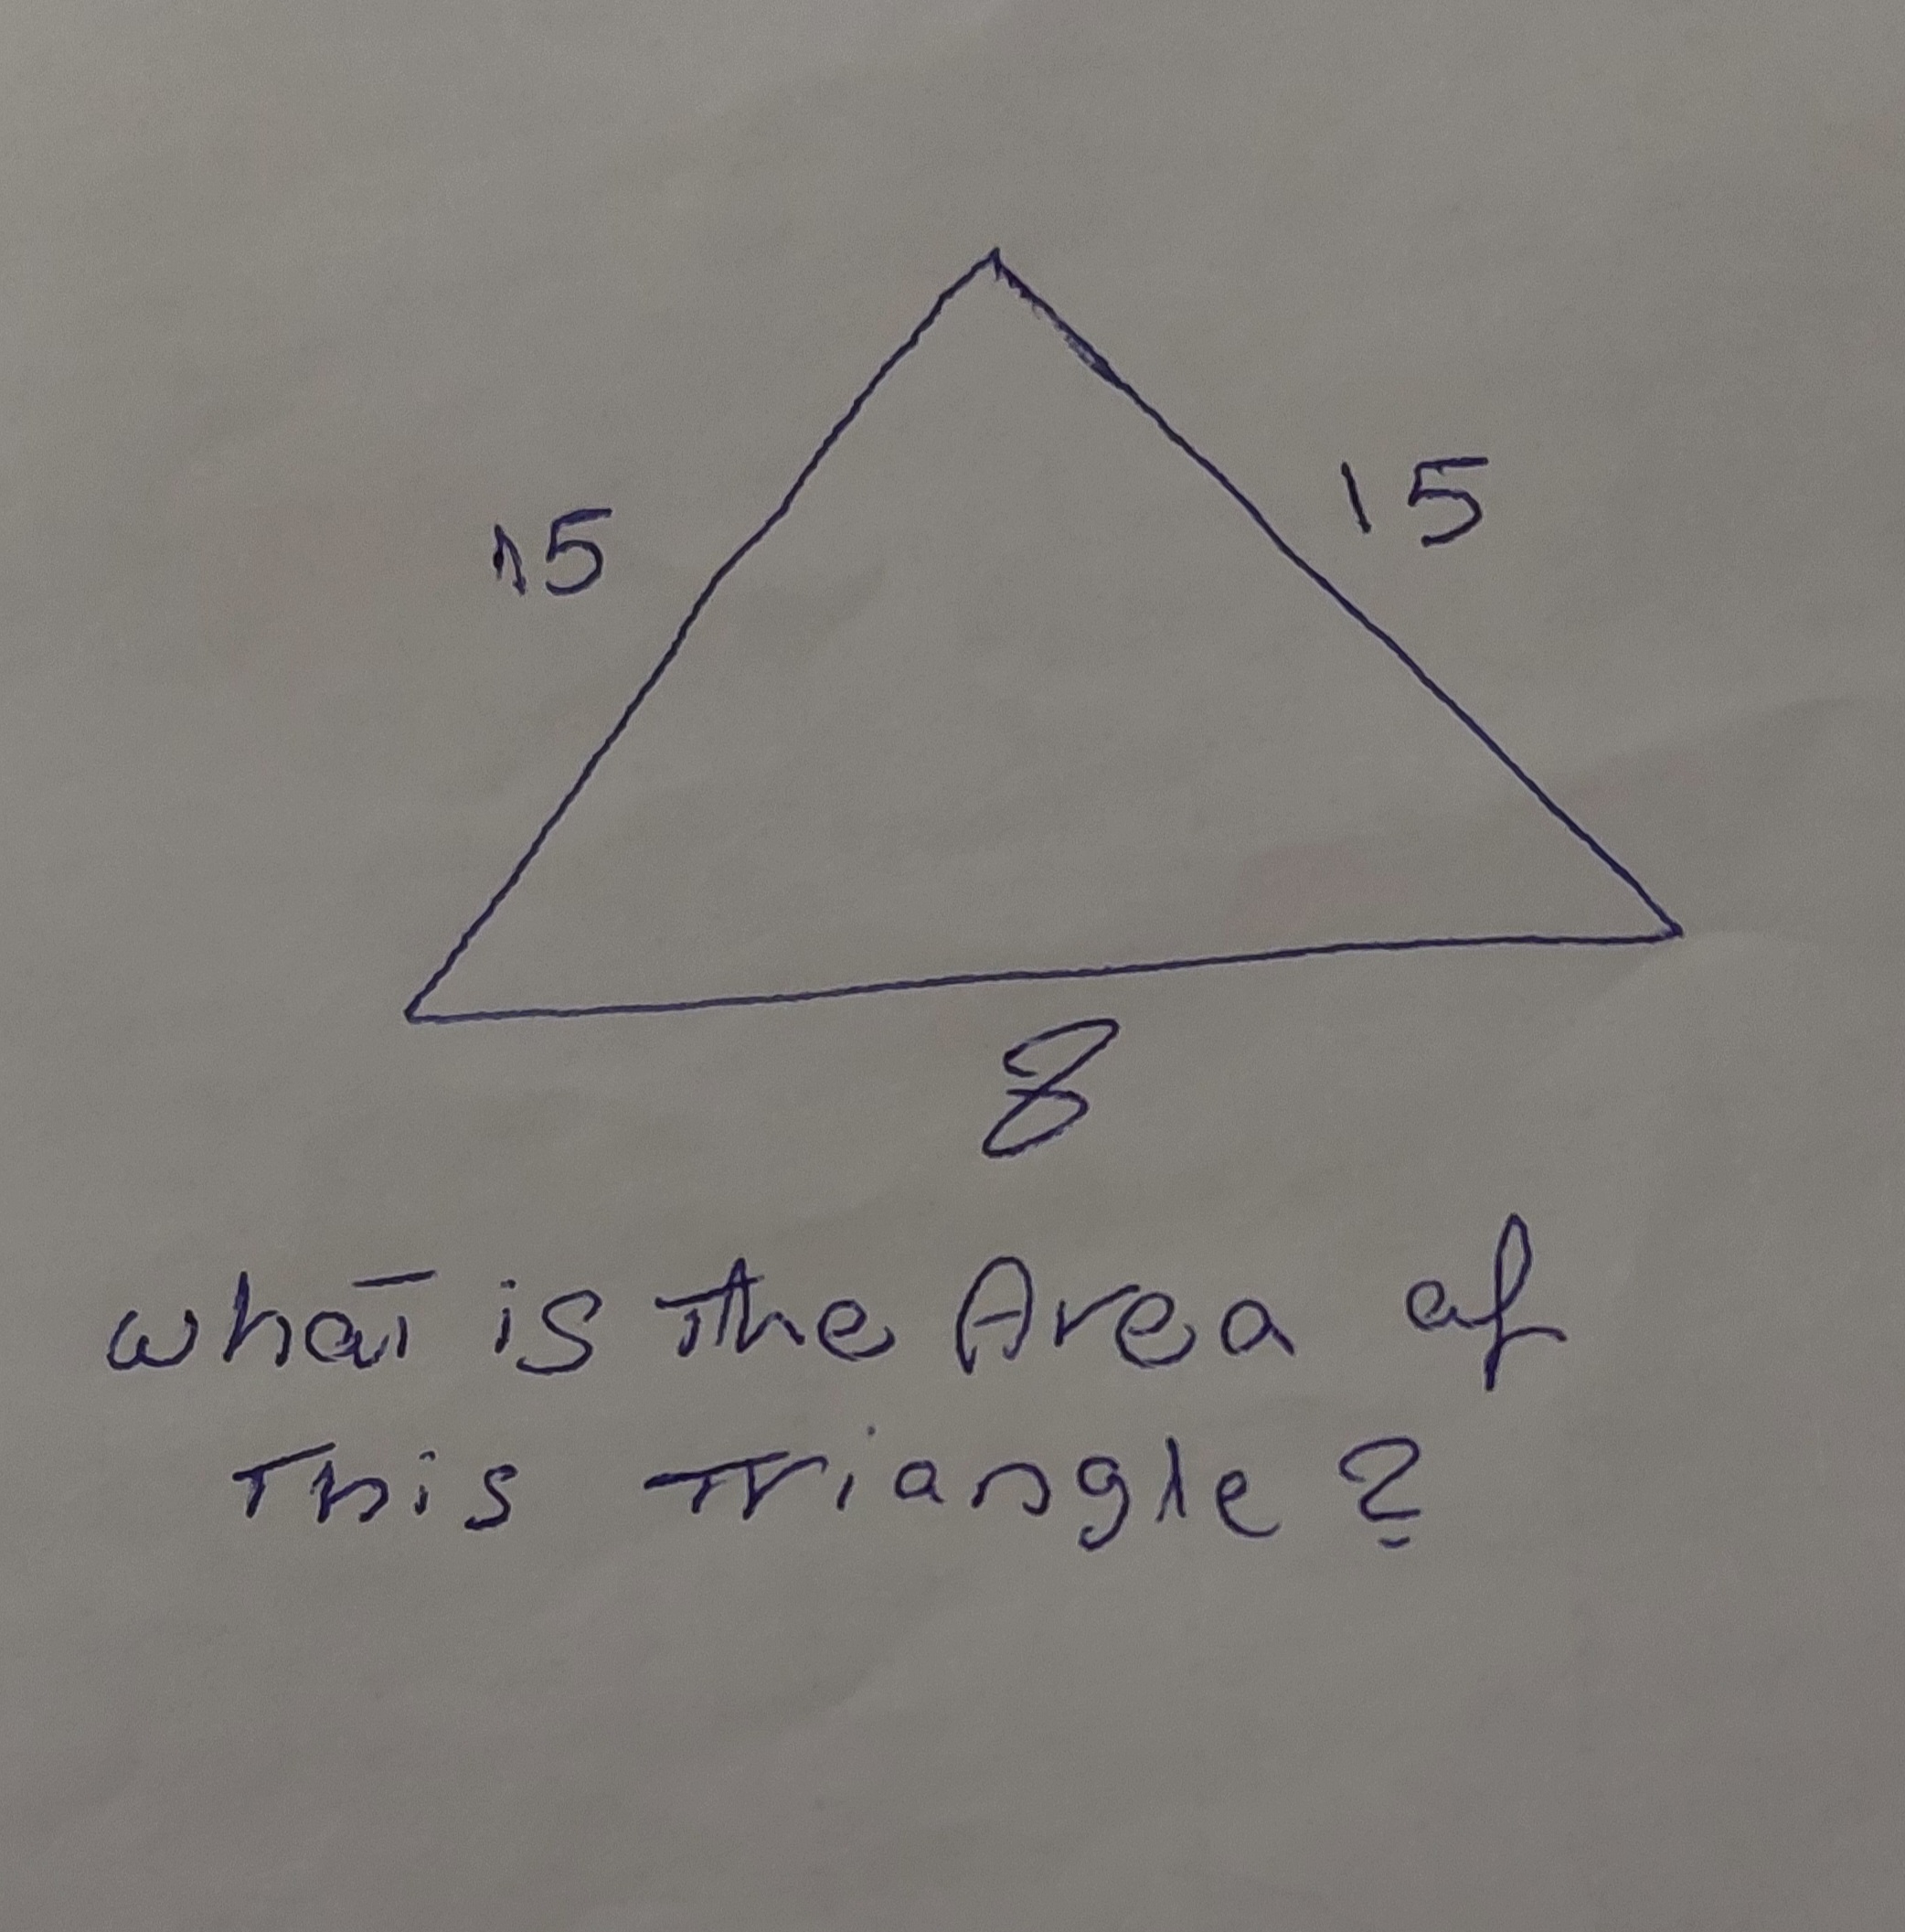 15
15
8
what is the Area of
This Triangle?